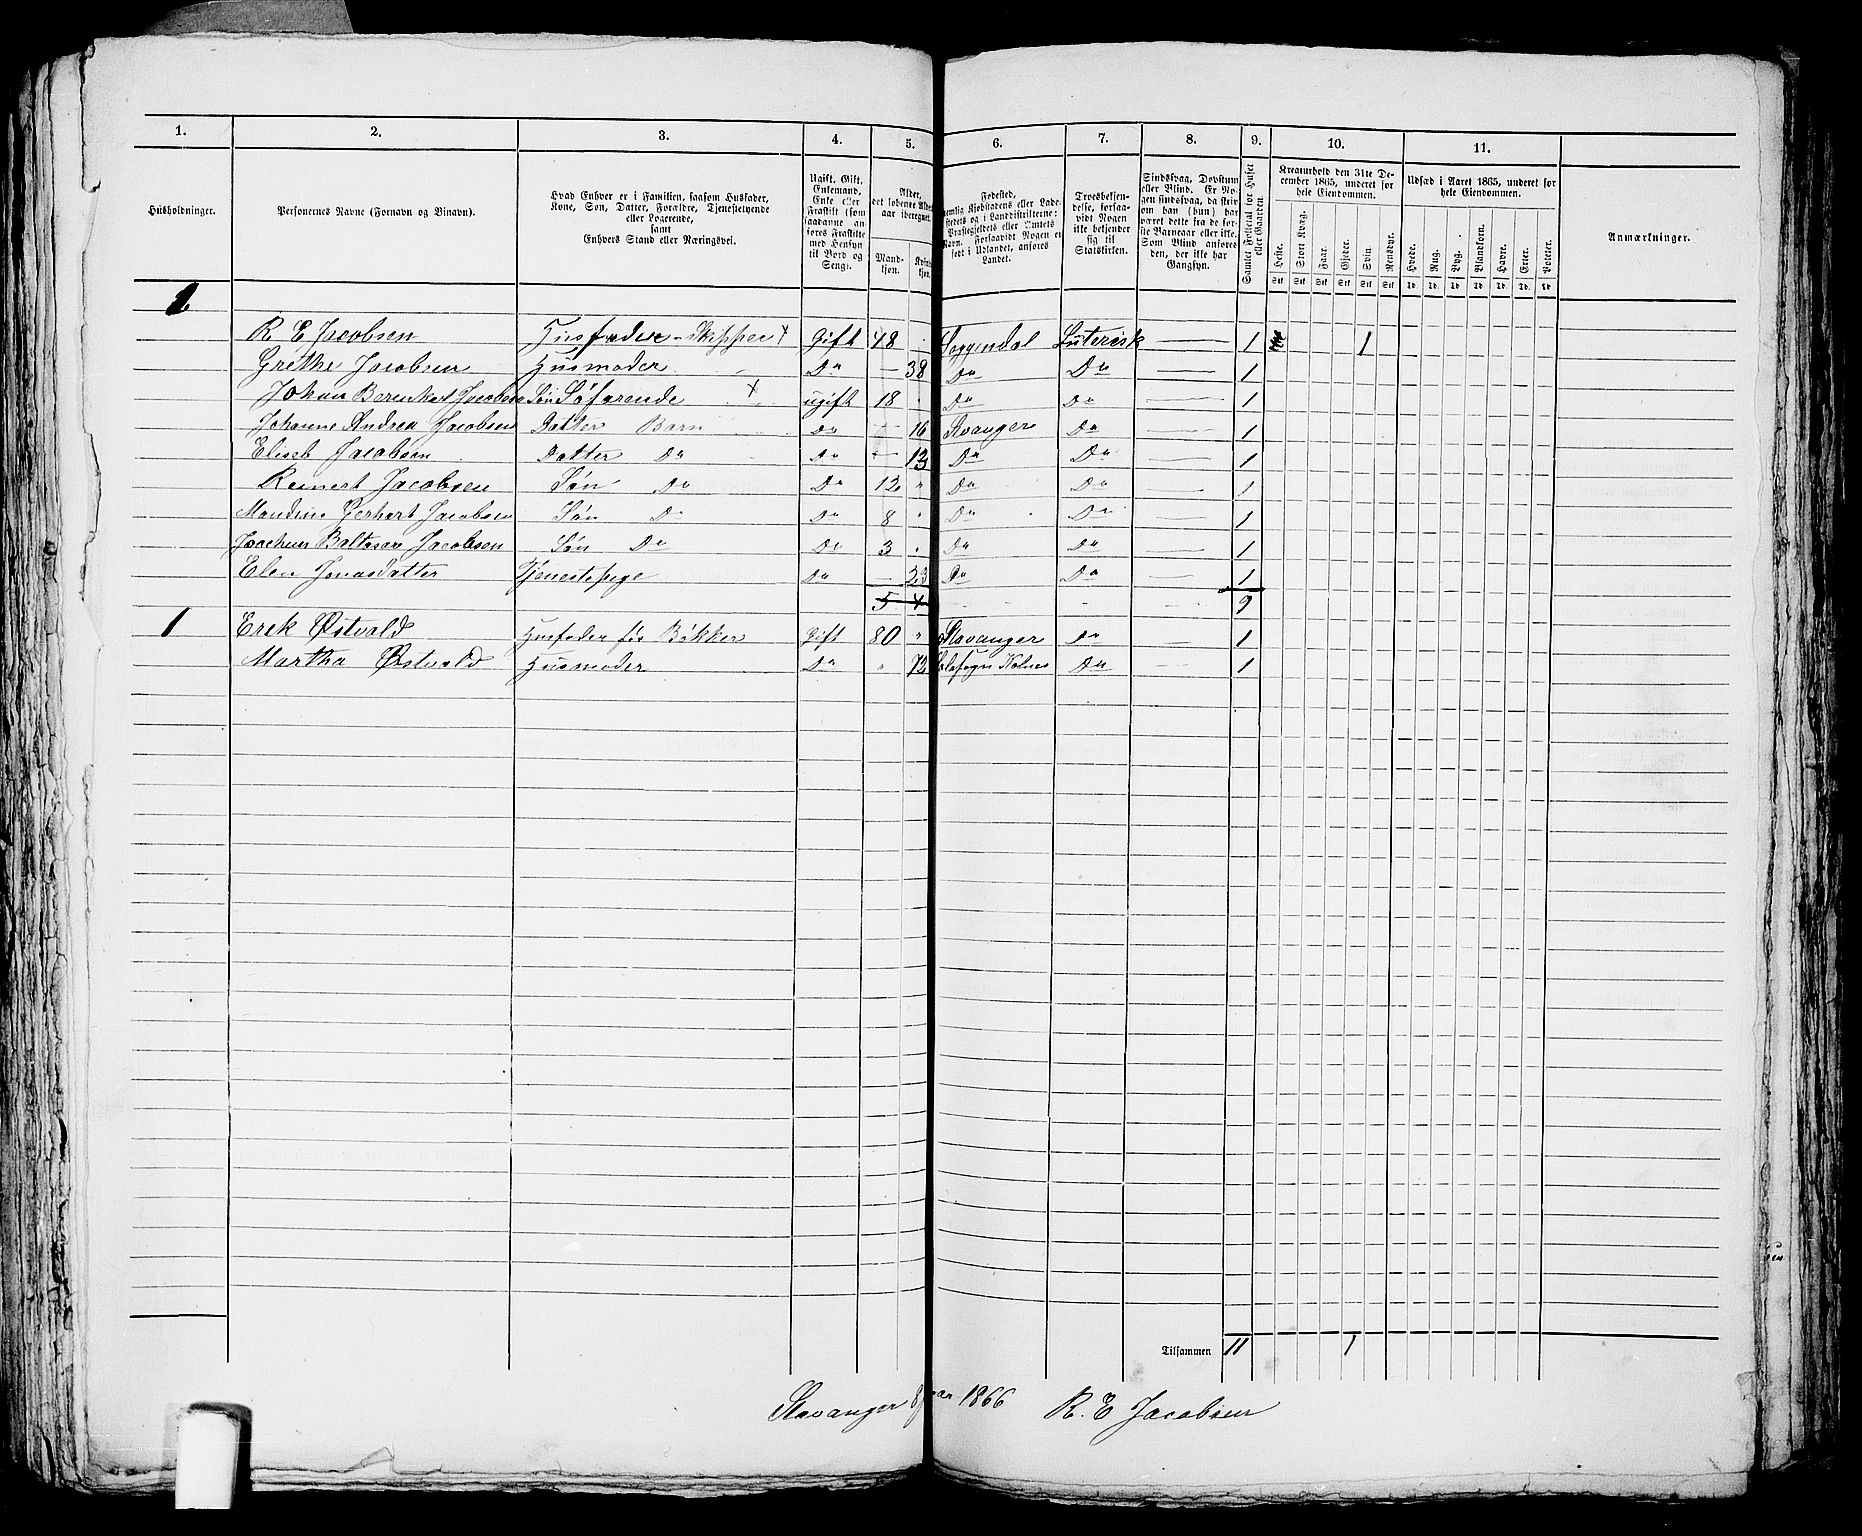 1. 2. 3. 4. 5. 6. 7. 8. 9. 10. 11.
Husholdninger.
Personernes Navne (Fornavn og Binavn).
Hvad Enhver er i Familien, saasom Husfader,
Kone, Søn, Datter, Forældre, Tjenestetyende
eller Logerende,
samt
Enhvers Stand eller Næringsvei.
Ugift, Gift,
Enkemand,
Enke eller
Fraskilt (som
saadanne an-
føres Fraskilte
med Hensyn
til Bord og
Seng).
Alder,
det løbende Alders-
aar iberegnet.
Mand-
kjøn.
Kvinde-
kjøn.
Fødested,
nemlig Kjøbstadens eller Lade-
stedets og i Landdistrikterne:
Præstegjeldets eller Amtets
Navn. Forsaavidt Nogen er
født i Udlandet, anføres
Landet.
Troesbekjen-
delse, forsaa-
vidt Nogen
ikke bekjender
sig til
Statskirken.
Sindssvag, Døvstum
eller Blind. Er No-
gen sindssvag, da skri-
ves om han (hun) har
været dette fra de før-
ste Barneaar eller ikke.
Som Blind anføres
den, der ikke har
Gangsyn.
Samlet Folketal for Huset
eller Gaarden.
Kreaturhold den 31te De-
cember 1865, underet for
hele Eiendommen.
Heste. Stort Kvæg. Faar. Gjeder. Svin. Rensdyr.
Stk Stk Stk Stk Stk Stk
Udsæd i Aaret 1865, underet for
hele Eiendommen.
Hvede. Rug. Byg. Blandkorn. Havre. Erter. Poteter.
Td. Td. Td Td Td. Td. Td
Anmærkninger.
1
R E Jacobsen Husfader - Skipper + Gift 48 Soggendal Luterisk — 1 1
Grethe Jacobsen Husmoder Do — 38 Do Do — 1
Johan Berenhart Jacobsen Søn Søfarende + ugift 18 Do Do — 1
Johanne Andrea Jacobsen Datter Barn Do — 16 Stavanger Do — 1
Eliseb Jacobsen Datter Do Do — 13 Do Do — 1
Reinert Jacobsen Søn Do Do 12 " Do Do — 1
Gerhart Jacobsen Søn Do Do 8 " Do Do — 1
Joachum Baltasar Jacobsen Søn Do Do 3 " Do Do — 1
Elen Jonasdatter Tjenestepige Do — 23 Do Do — 1
5 4 9
1 Erek Østvold Husfader før Bøkker Gift 80 " Stavanger Do — 1
Martha Østvold Husmoder Do " 72 Do — 1
Tilsammen 11 1
Stavanger 1866 R. E Jacobsen